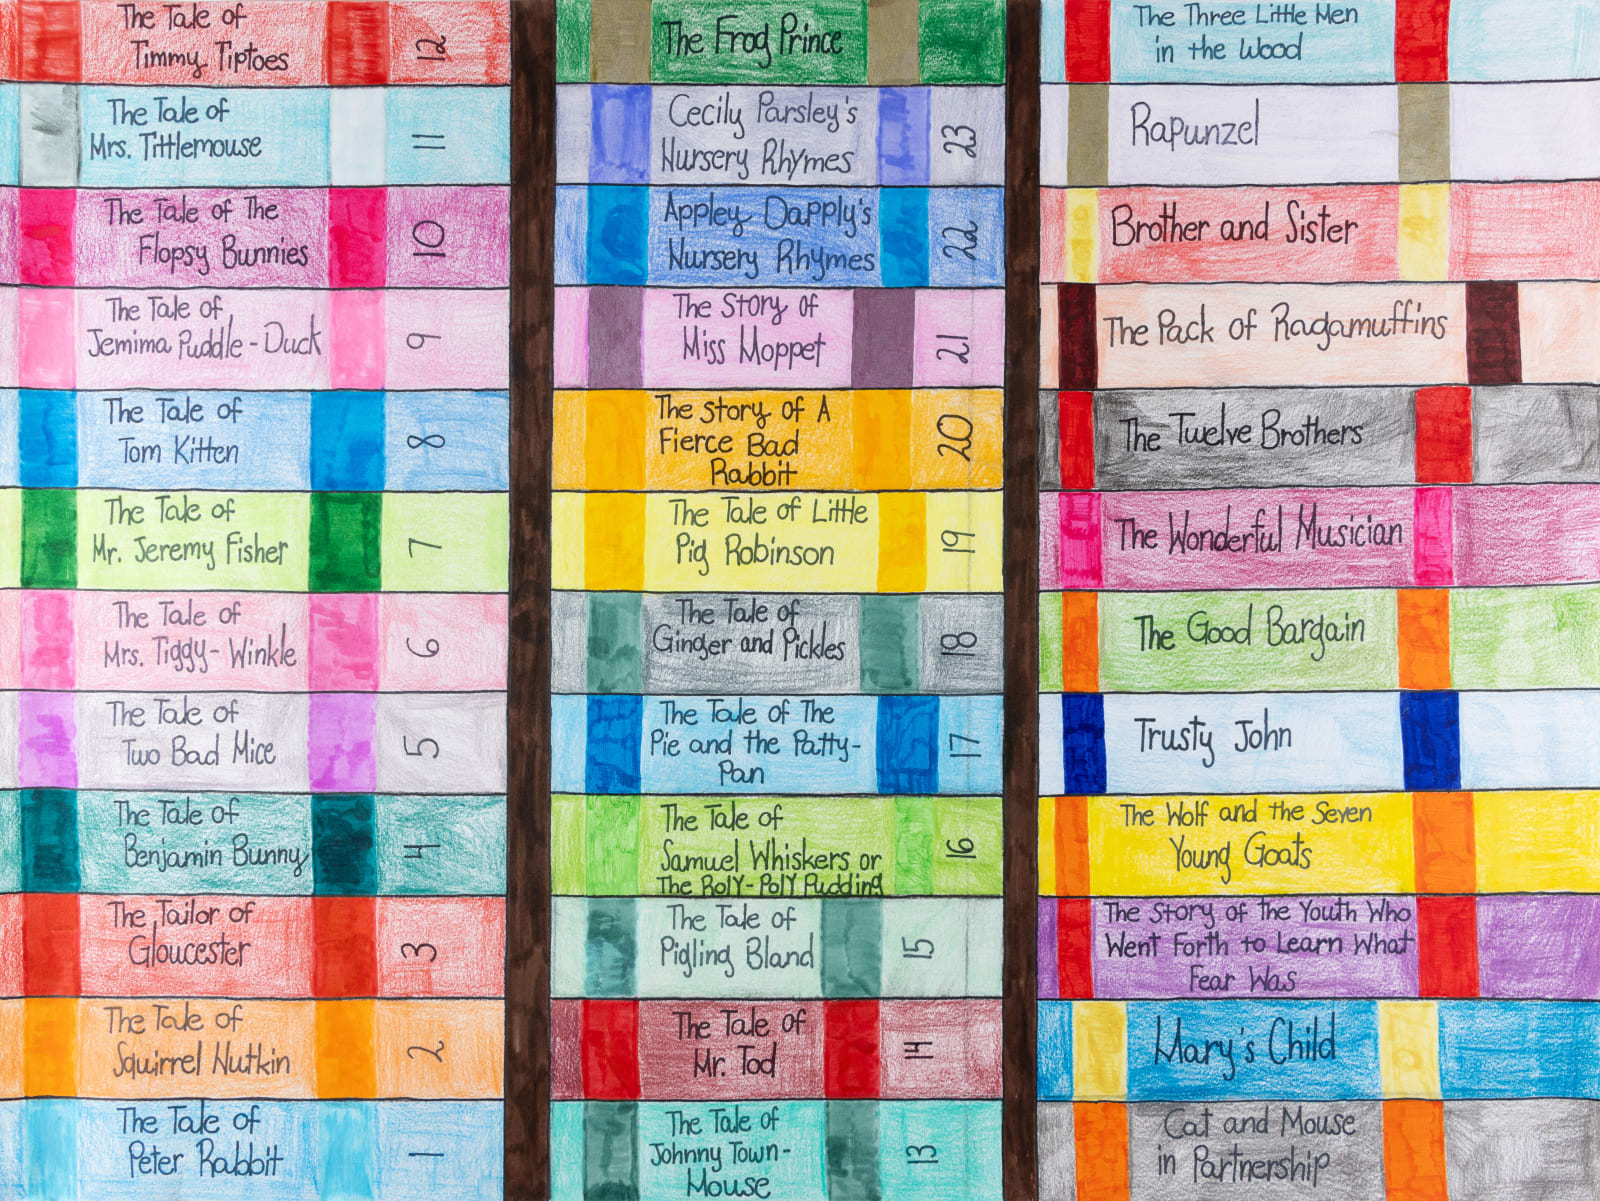 The Tale of
Timmy Tiptoes
12
The Tale of
Mrs. Tittlemouse
11
The Tale of The
Flopsy Bunnies
10
The Tale of
Jemima Puddle-Duck
9
The Tale of
Tom Kitten
8
The Tale of
Mr. Jeremy Fisher
7
The Tale of
Mrs. Tiggy-Winkle
6
The Tale of
Two Bad Mice
5
The Tale of
Benjamin Bunny
4
The Tailor of
Gloucester
3
The Tale of
Squirrel Nutkin
2
The Tale of
Peter Rabbit
1
The Frog Prince
Cecily Parsley's
Nursery Rhymes
23
Appley Dapply's
Nursery Rhymes
22
The Story of
Miss Moppet
21
The Story of A
Fierce Bad
Rabbit
20
The Tale of Little
Pig Robinson
19
The Tale of
Ginger and Pickles
18
The Tale of The
Pie and the Patty-
Pan
17
The Tale of
Samuel Whiskers or
The Roly-Poly Pudding
16
The Tale of
Pigling Bland
15
The Tale of
Mr. Tod
14
The Tale of
Johnny Town-
Mouse
13
The Three Little Men
in the Wood
Rapunzel
Brother and Sister
The Pack of Ragamuffins
The Twelve Brothers
The Wonderful Musician
The Good Bargain
Trusty John
The Wolf and the Seven
Young Goats
The Story of the Youth Who
Went Forth to Learn What
Fear Was
Mary's Child
Cat and Mouse
in Partnership